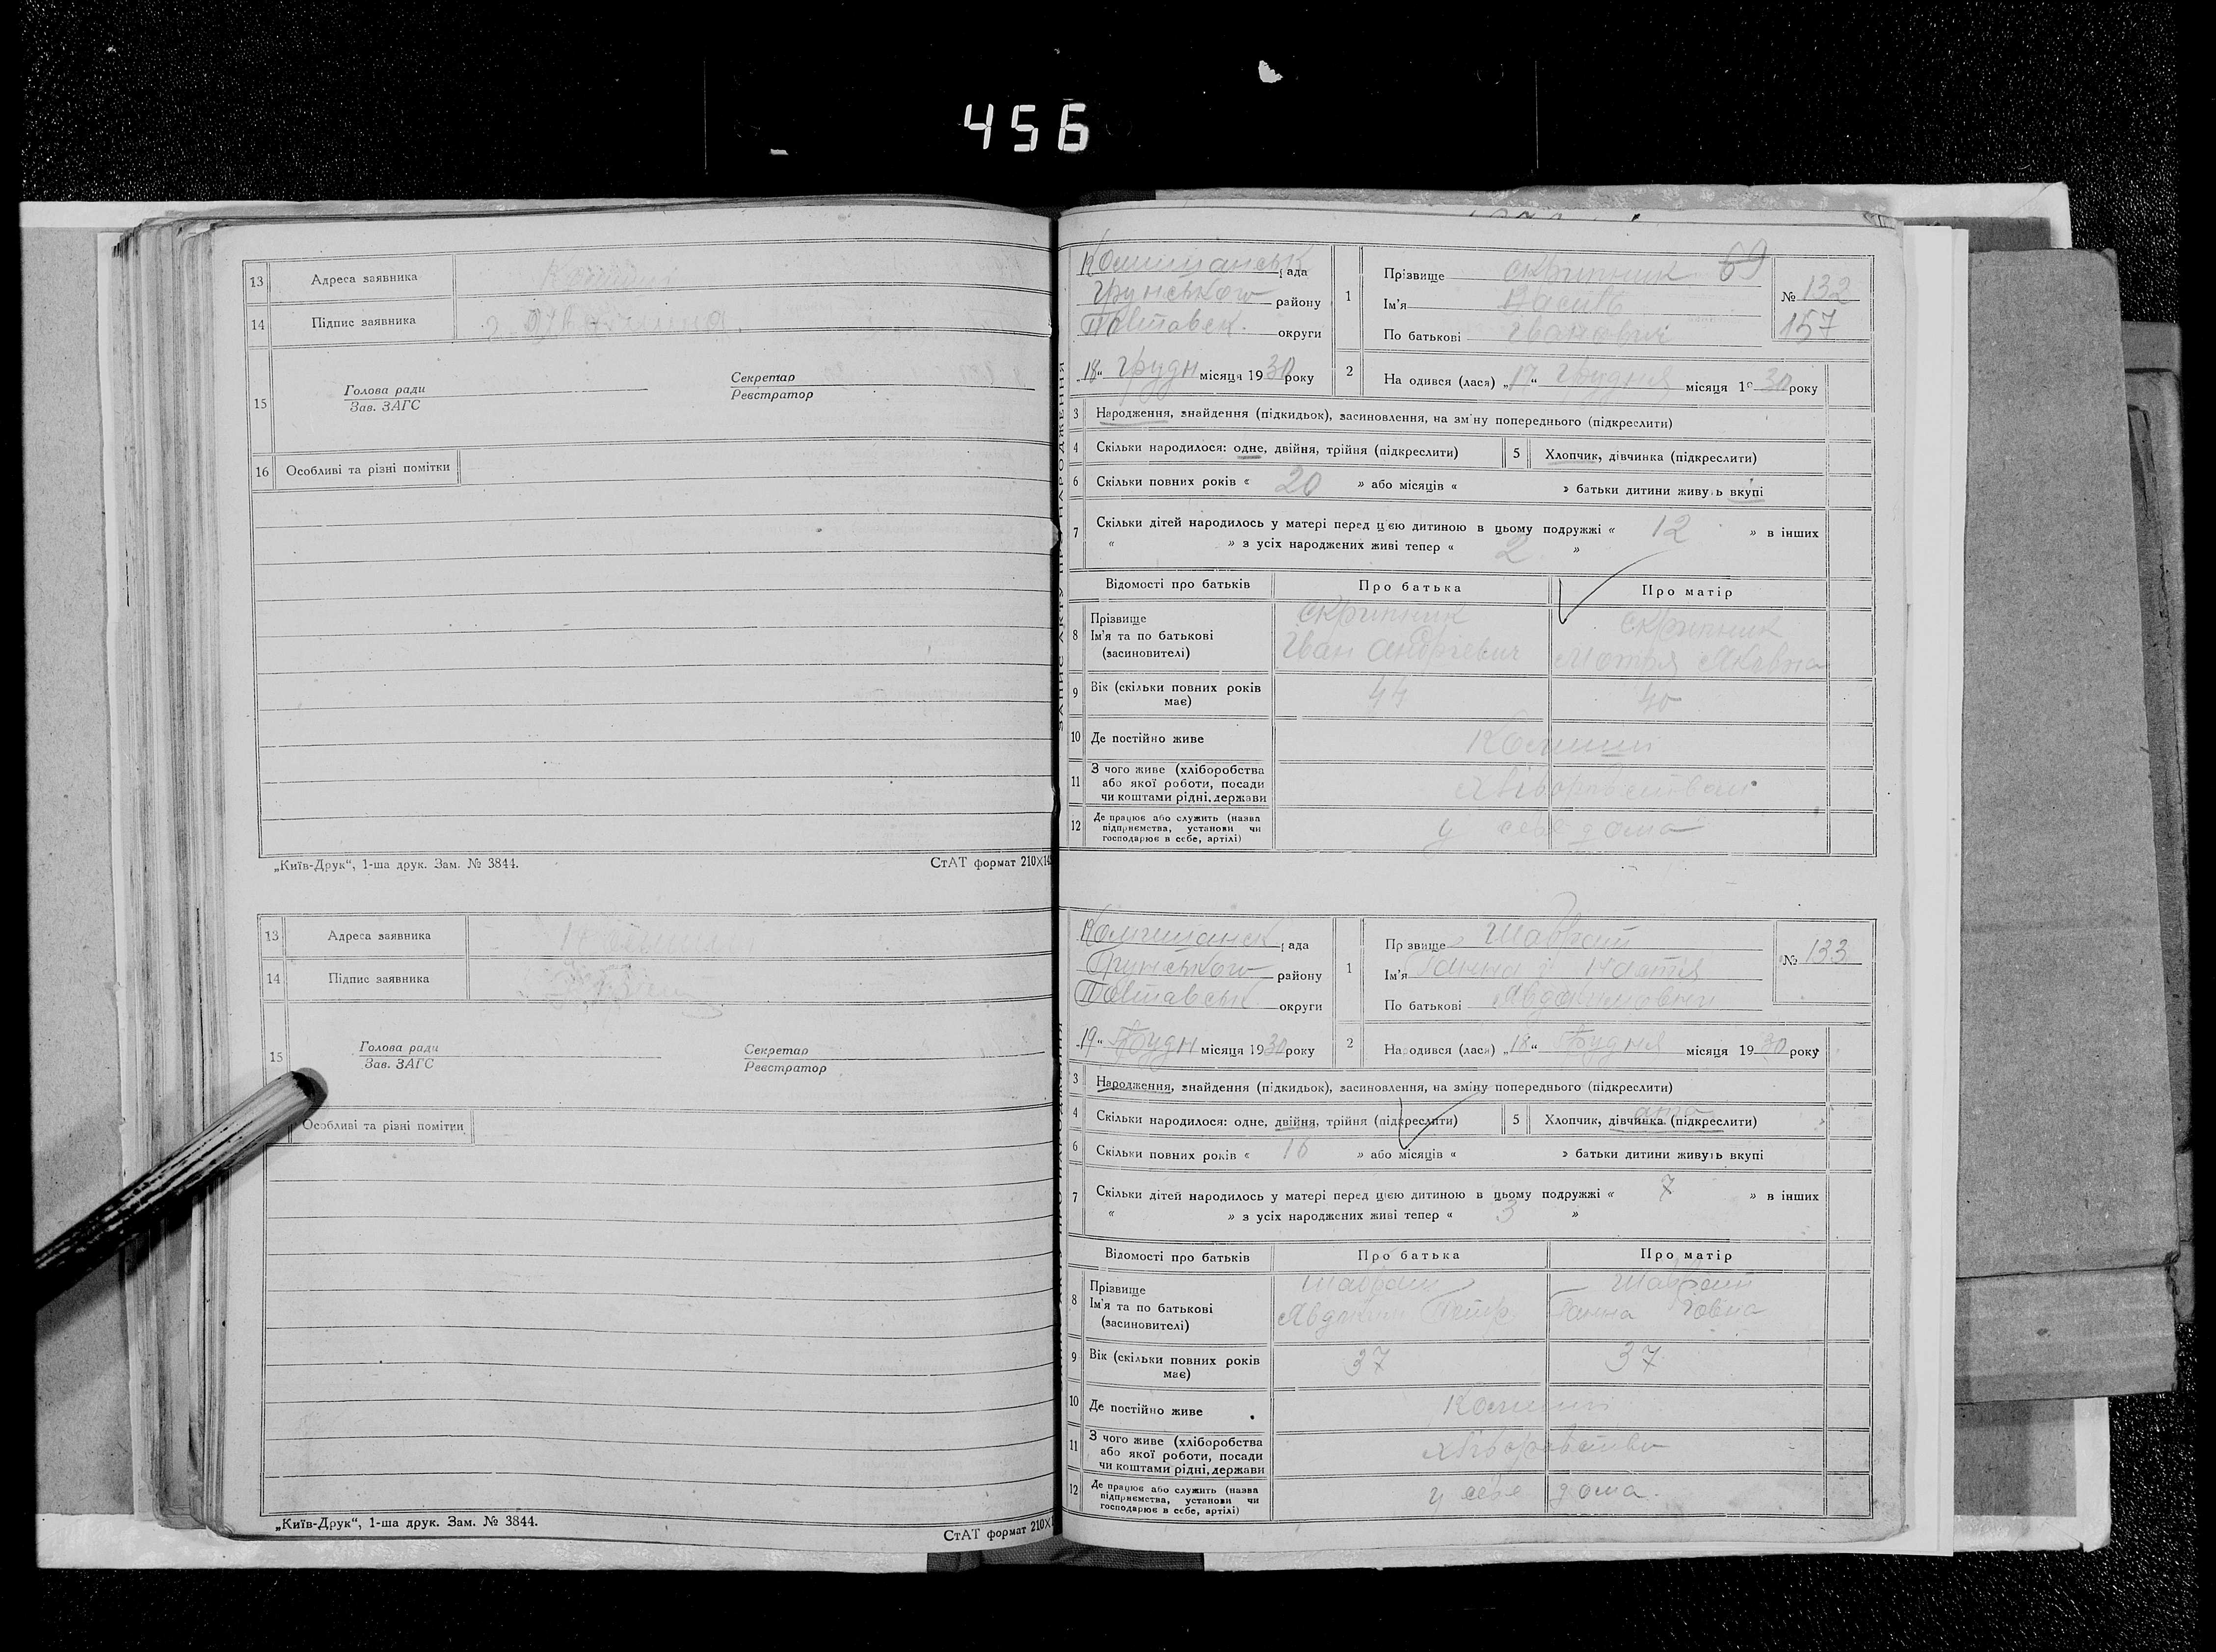 456
13 Адреса заявника
14 Підпис заявника
15 Голова ради
Зав. ЗАГС
Секретар
Реєстратор
16 Особливі та різні помітки
„Київ-Друк“, 1-ша друк. Зам. № 3844.
СтАТ формат 210X14
13 Адреса заявника
14 Підпис заявника
15 Голова ради
Зав. ЗАГС
Секретар
Реєстратор
Особливі та різні помітки
„Київ-Друк“, 1-ша друк. Зам. № 3844.
СтАТ формат 210X1
69
рада
Грунського району
Полтавск. округи
„18“ Грудн місяця 1930 року
1 Прізвище Скрипник
Ім'я Василь
По батькові Іванович
№ 132
157
2 На одився (лася) „17“ Грудня місяця 1930 року
3 Народження, знайдення (підкидьок), засиновлення, на зміну попереднього (підкреслити)
4 Скільки народилося: одне, двійня, трійня (підкреслити)
5 Хлопчик, дівчинка (підкреслити)
6 Скільки повних років « 20 » або місяців « » батьки дитини живуть вкупі
7 Скільки дітей народилось у матері перед цією дитиною в цьому подружжі « 12 » в інших
« » з усіх народжених живі тепер « 2 »
Відомості про батьків Про батька Про матір
8 Прізвище
Ім'я та по батькові
(засиновителі)
Скрипник
Іван Андрієвич
Скрипник
Мотря Яковна
9 Вік (скільки повних років має) 44 40
10 Де постійно живе
11 З чого живе (хліборобства
або якої роботи, посади
чи коштами рідні, держави
12 Де працює або служить (назва
підприємства, установи чи
господарює в себе, артілі)
у себе дома
рада
Грунського району
Полтавськ. округи
„19“ Грудн місяця 1930 року
1 Пр звище
Ім'я Ганна і Настя
По батькові
№ 133
2 Народився (лася) „18“ Грудня місяця 1930 року
3 Народження, знайдення (підкидьок), засиновлення, на зміну попереднього (підкреслити)
4 Скільки народилося: одне, двійня, трійня (підкреслити)
5 Хлопчик, дівчинка (підкреслити)
6 Скільки повних років « 16 » або місяців « » батьки дитини живуть вкупі
7 Скільки дітей народилось у матері перед цією дитиною в цьому подружжі « 7 » в інших
« » з усіх народжених живі тепер « 3 »
Відомості про батьків Про батька Про матір
8 Прізвище
Ім'я та по батькові
(засиновителі)
Ганна
9 Вік (скільки повних років має) 37 37
10 Де постійно живе
11 З чого живе (хліборобства
або якої роботи, посади
чи коштами рідні, держави
12 Де працює або служить (назва
підприємства, установи чи
господарює в себе, артілі)
у себе дома.